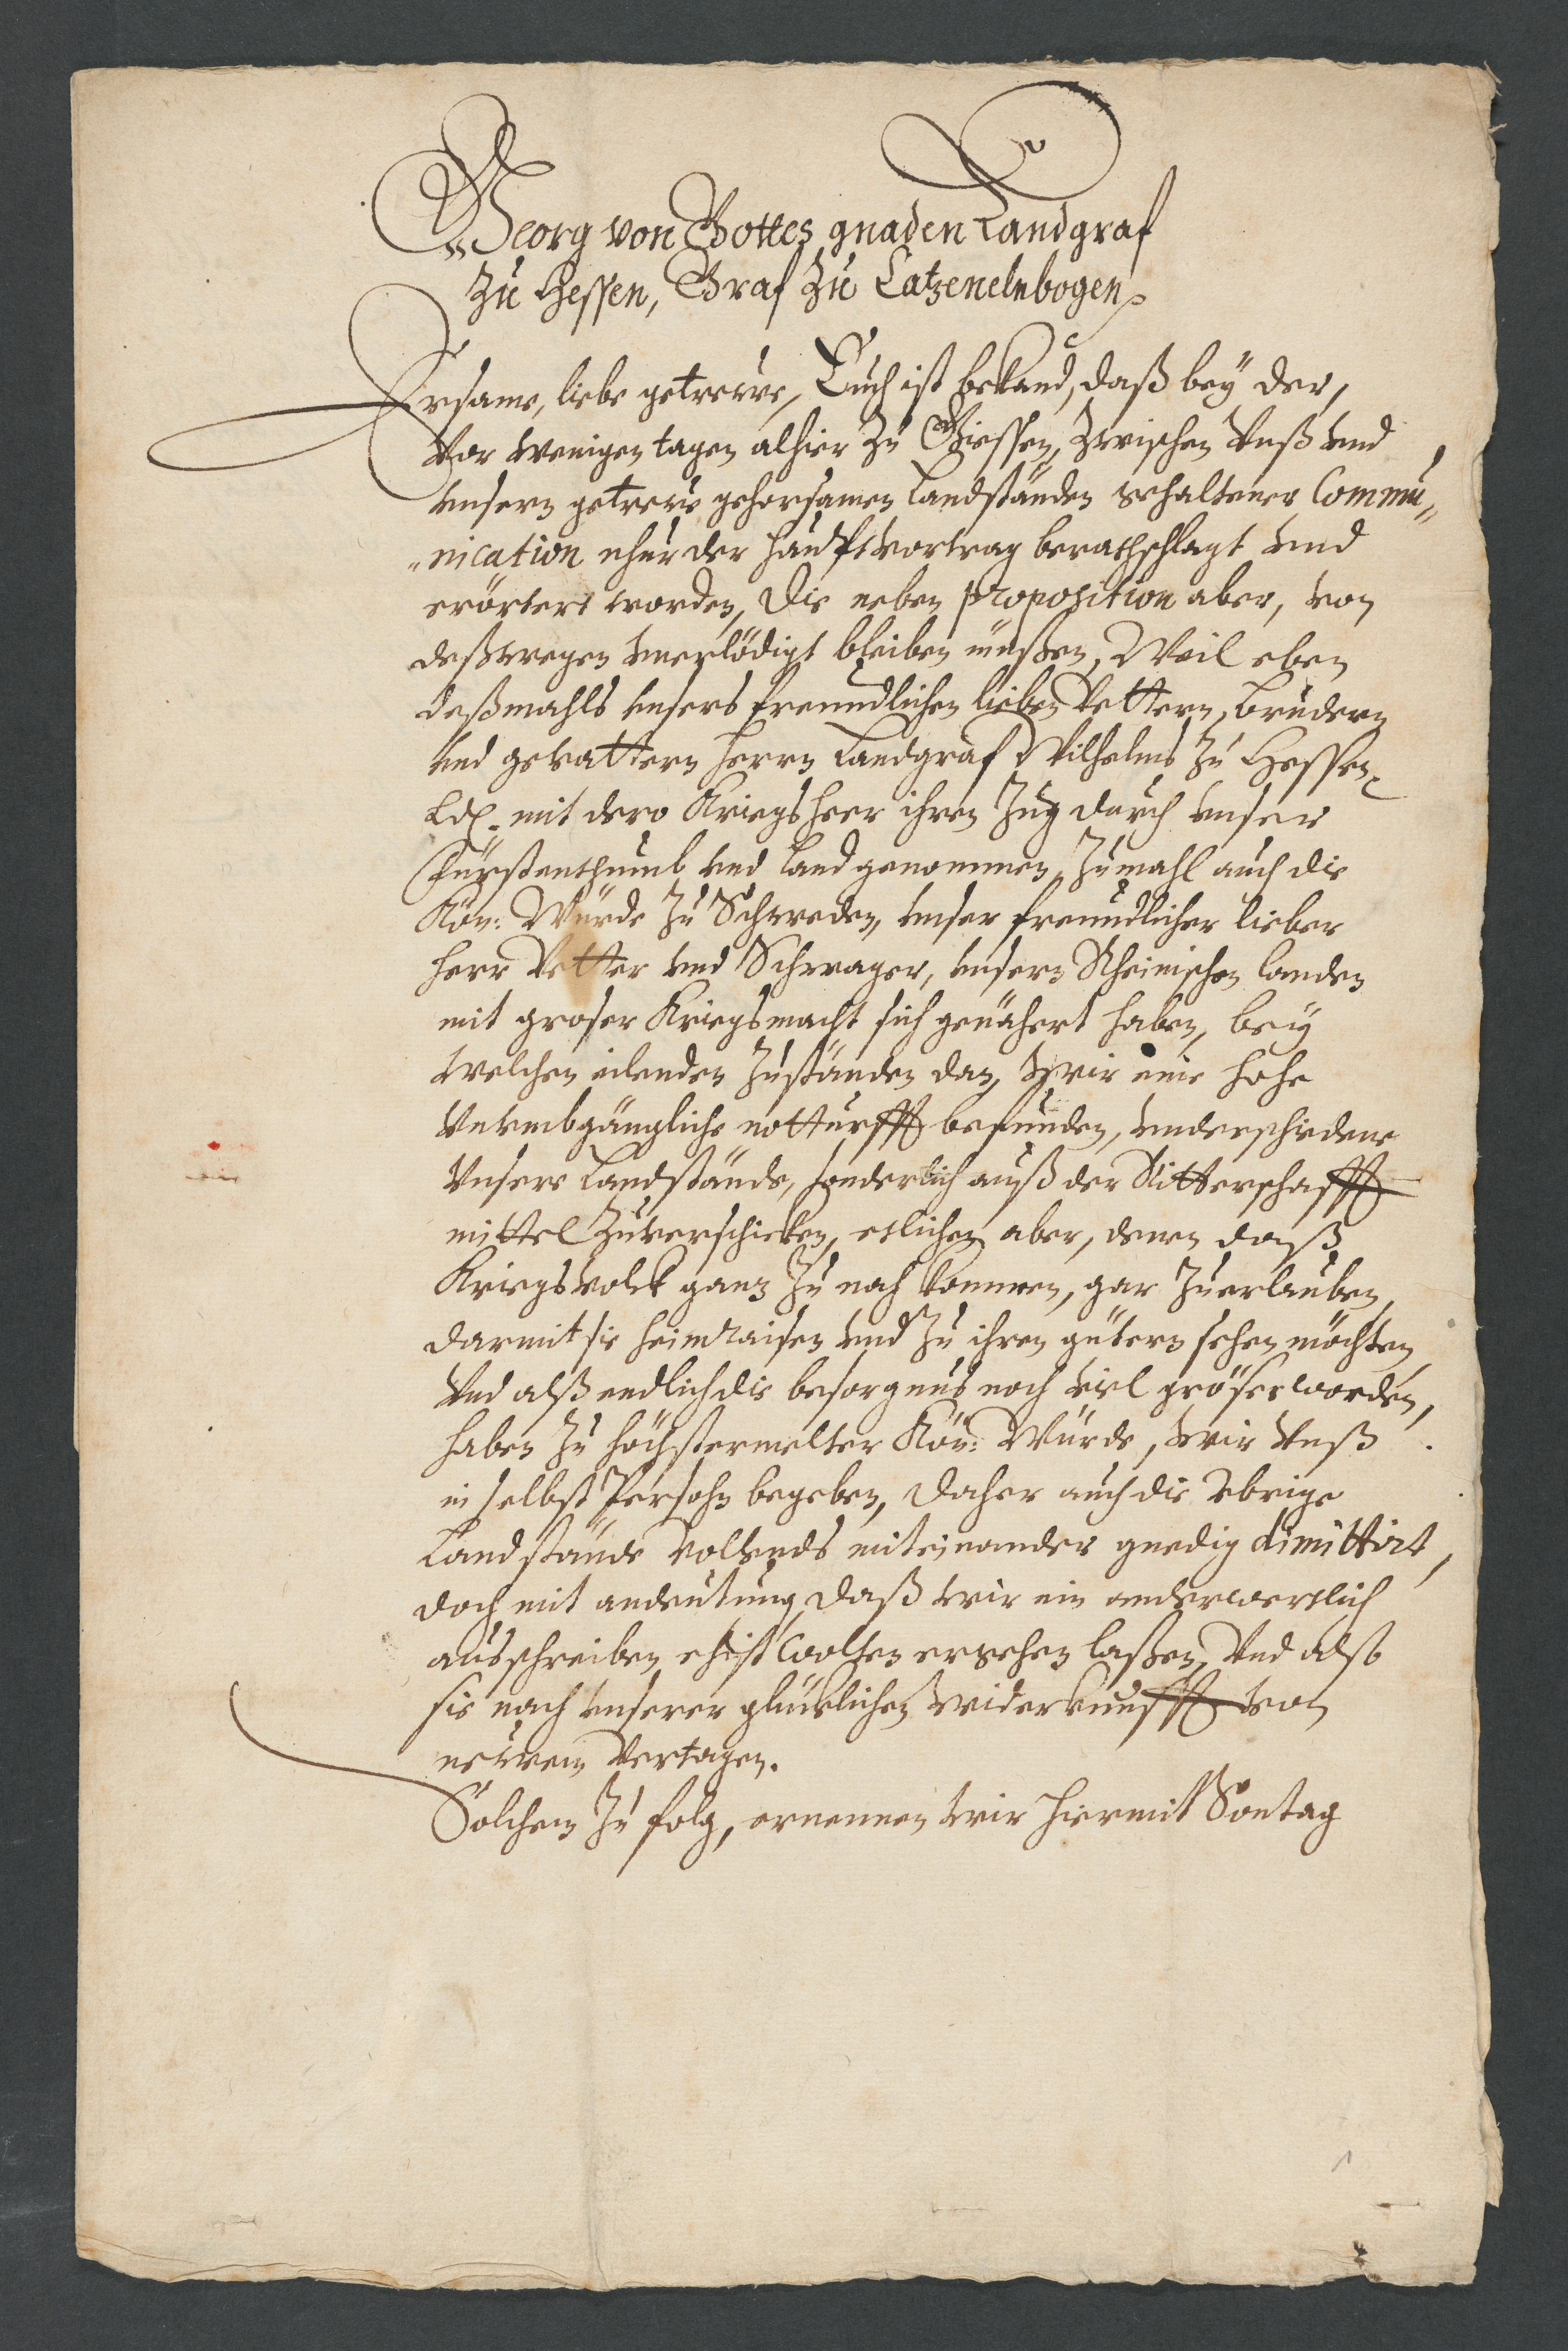 Georg von Gottes gnaden Landgraf
zu Hessen, Graf zu Catzenelnbogen
Ersame, liebe getrewe, Euch ist bekand, daß bey der,
vor wenigen tagen alhier zu Giessen, zwischen Unß und
unsern getrew gehorsamen Landständen gehaltener Commu„
„nication nhur der Hauptvortrag berathschlagt und
erörtert worden, Die neben proposition aber, von
deßwegen unerlödigt bleiben müßen, Weil eben
deßmahls unsers freundlichen lieben Vettern, Brudern
und gevattern Herrn Landgraf Wilhelms zu Hessen
Ld. mit dero Kriegsheer ihren Zug durch unser
Fürstenthumb und Land genommen, Zumahl auch die
Kön: Würde zu Schweden, unser freundlicher lieber
Herr Vetter und Schwager, unsern Rheinischen Landen
mit groser Kriegsmacht sich genähert haben, bey
welchen eilenden Zuständen dan, wir eine hohe
unumbgängliche notturfft befunden, underschiedene
Unsere Landstände, sonderlich auß der Ritterschafft
mittel zuverschicken, etlichen aber, denen daß
Kriegsvolck ganz zu nah kommen, gar zuerlauben,
darmit sie heimraisen und zu ihren gütern sehen möchten,
Und alß endlich die besorgnus noch viel gröser worden,
haben zu höchstermelter Kön: Würde, wir Unß
in selbst Persohn begeben, Daher auch die Übrige
Landstände vollends miteinander gnedig dimittirt,
doch mit andeutung, daß wir ein anderwertlich
ausschreiben ehist wolten ergehen laßen, Und also
sie nach unserer glücklichen widerkunfft von
newem Vertagen.
Solchem zu folg, ernennen wir hiermit Sontag